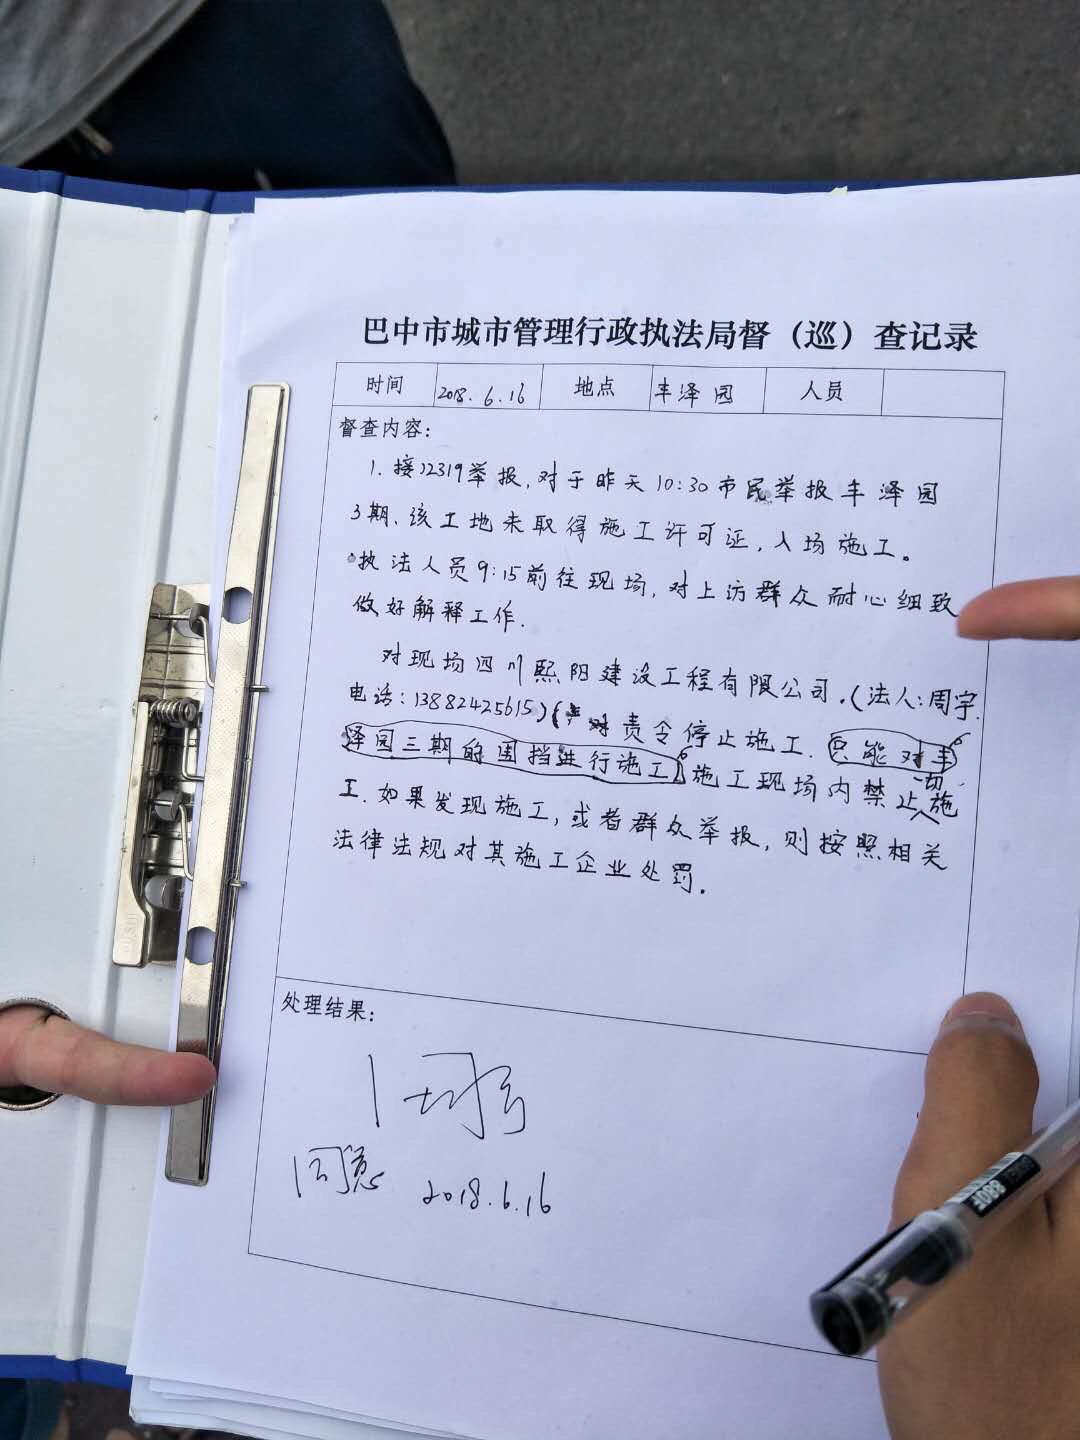 巴中市城市管理行政执法局督（巡）查记录
时间 2018.6.16 地点 丰泽园 人员
督查内容：
1.接12319举报,对于昨天10:30市民举报丰泽园
3期、该工地未取得施工许可证,入场施工。
执法人员9:15前往现场,对上访群众耐心细致
做好解释工作.
对现场四川熙阳建设工程有限公司.(法人:周宇.
电话:13882425615)(对责令停止施工.只能对丰
泽园三期的围挡进行施工,施工现场内禁止一切施
工.如果发现施工,或者群众举报,则按照相关
法律法规对其施工企业处罚.
处理结果：
同意 2018.6.16
880F